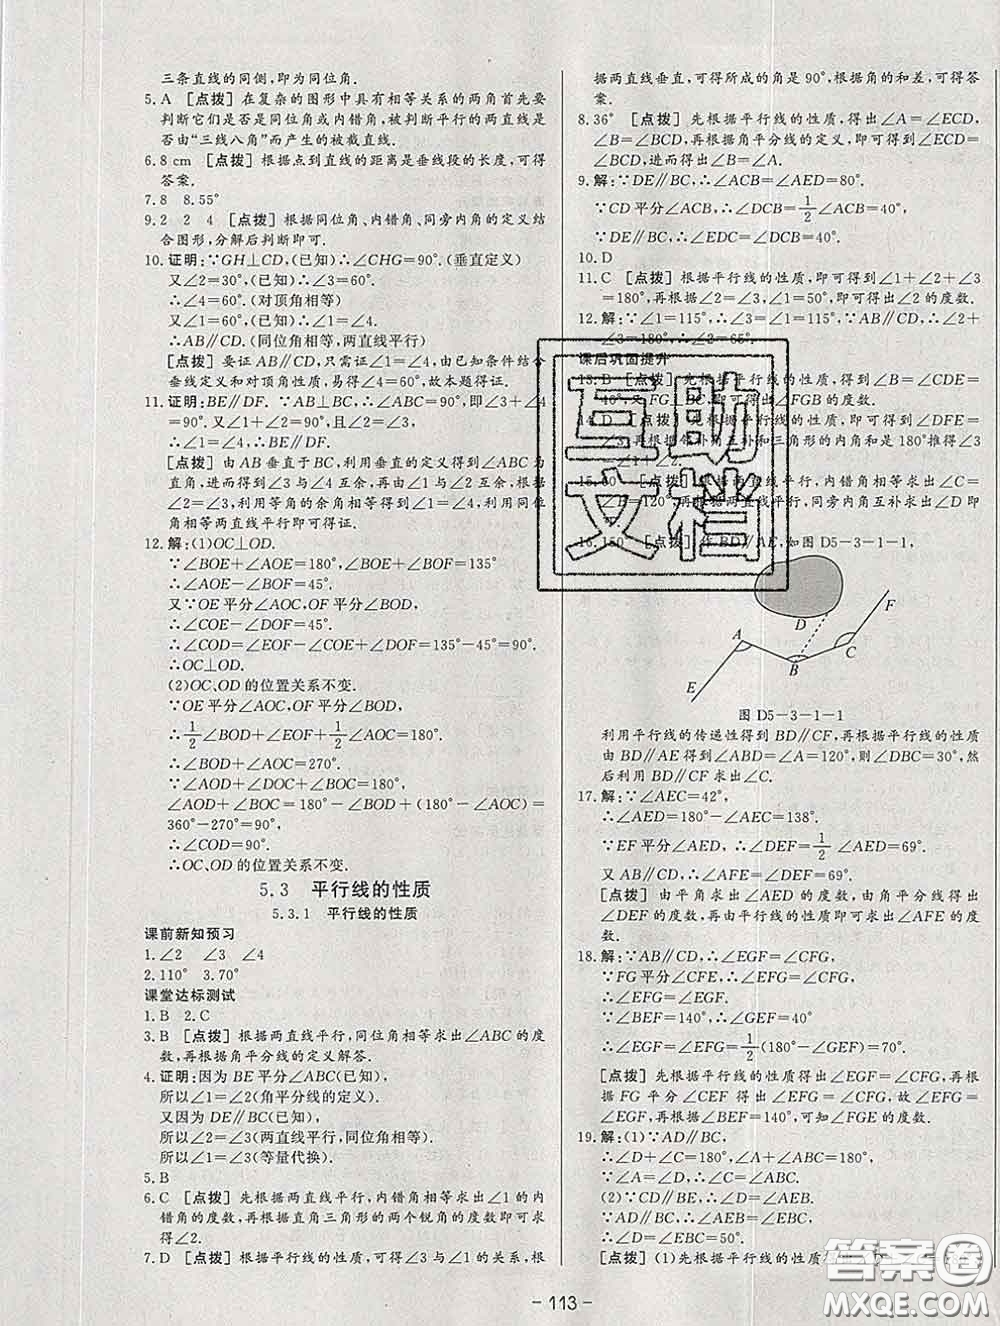 三条直线的同侧,即为同位角.
5.A [点拨] 在复杂的图形中具有相等关系的两角首先要
判断它们是否是同位角或内错角,被判断平行的两直线是
否由“三线八角”而产生的被截直线.
6.8 cm [点拨] 根据点到直线的距离是垂线段的长度,可得
答案.
7.8 8.55°
9.2 2 4 [点拨] 根据同位角、内错角、同旁内角的定义结
合图形,分解后判断即可.
10.证明:∵GH⊥CD,(已知)∴∠CHG=90°.(垂直定义)
又∵∠2=30°,(已知)∴∠3=60°.
∴∠4=60°.(对顶角相等)
又∵∠1=60°,(已知)∴∠1=∠4.
∴AB∥CD.(同位角相等,两直线平行)
[点拨] 要证AB∥CD,只需证∠1=∠4,由已知条件结合
垂线定义和对顶角性质,易得∠4=60°,故本题得证.
11.证明:BE∥DF. ∵AB⊥BC,∴∠ABC=90°,即∠3+∠4
=90°.又∵∠1+∠2=90°,且∠2=∠3,
∴∠1=∠4,∴BE∥DF.
[点拨] 由AB垂直于BC,利用垂直的定义得到∠ABC为
直角,进而得到∠3与∠4互余,再由∠1与∠2互余,根据
∠2=∠3,利用等角的余角相等得到∠1=∠4,利用同位角
相等两直线平行即可得证.
12.解:(1)OC⊥OD.
∵∠BOE+∠AOE=180°,∠BOE+∠BOF=135°
∴∠AOE-∠BOF=45°.
又∵OE平分∠AOC,OF平分∠BOD,
∴∠COE-∠DOF=45°.
∴∠COD=∠EOF-∠COE+∠DOF=135°-45°=90°.
∴OC⊥OD.
(2)OC、OD的位置关系不变.
∵OE平分∠AOC,OF平分∠BOD,
∴1/2∠BOD+∠EOF+1/2∠AOC=180°.
∴∠BOD+∠AOC=270°.
∵∠AOD+∠DOC+∠BOC=180°.
∠AOD+∠BOC=180°-∠BOD+(180°-∠AOC)=
360°-270°=90°,
∴∠COD=90°.
∴OC、OD的位置关系不变.
5.3 平行线的性质
5.3.1 平行线的性质
课前新知预习
1.∠2 ∠3 ∠4
2.110° 3.70°
课堂达标测试
1.B 2.C
3.B [点拨] 根据两直线平行,同位角相等求出∠ABC的度
数,再根据角平分线的定义解答.
4.证明:因为BE平分∠ABC(已知),
所以∠1=∠2(角平分线的定义).
又因为DE∥BC(已知),
所以∠2=∠3(两直线平行,同位角相等).
所以∠1=∠3(等量代换).
5.B
6.C [点拨] 先根据两直线平行,内错角相等求出∠1的内
错角的度数,再根据直角三角形的两个锐角的度数即可求
得∠2.
7.D [点拨] 根据平行线的性质,可得∠3与∠1的关系,根
据两直线垂直,可得所成的角是90°,根据角的和差,可得答
案.
8.36° [点拨] 先根据平行线的性质,得出∠A=∠ECD,
∠B=∠BCD,再根据角平分线的定义,即可得到∠ECD=
∠BCD,进而得出∠B=∠A.
9.解:∵DE∥BC,∴∠ACB=∠AED=80°.
∵CD平分∠ACB,∴∠DCB=1/2∠ACB=40°,
∵DE∥BC,∴∠EDC=∠DCB=40°.
10.D
11.C [点拨] 根据平行线的性质,即可得到∠1+∠2+∠3
=180°,再根据∠2=∠3,∠1=50°,即可得出∠2的度数.
12.解:∵∠1=115°,∴∠3=∠1=115°,∵AB∥CD,∴∠2+
∠3=180°,∴∠2=65°.
课后巩固提升
13.B [点拨] 先根据平行线的性质,得到∠B=∠CDE=
40°,又FG⊥BC,即可得出∠FGB的度数.
14.D [点拨] 先根据平行线的性质,得到∠DFE=
再根据邻补角互补和三角形的内角和是180°推得∠3
=∠1+∠2.
15.60 [点拨] 根据两直线平行,内错角相等求出∠C=
∠1=120°,再根据两直线平行,同旁内角互补求出∠D即
可.
16.150 [点拨] 作BD∥AE,如图D5-3-1-1,
A B C D E F
图D5-3-1-1
利用平行线的传递性得到BD∥CF,再根据平行线的性质
由BD∥AE得到∠ABD=∠A=120°,则∠DBC=30°,然
后利用BD∥CF求出∠C.
17.解:∵∠AEC=42°,
∴∠AED=180°-∠AEC=138°.
∵EF平分∠AED,∴∠DEF=1/2∠AED=69°.
又AB∥CD,∴∠AFE=∠DEF=69°.
[点拨] 由平角求出∠AED的度数,由角平分线得出
∠DEF的度数,再由平行线的性质即可求出∠AFE的度
数.
18.解:∵AB∥CD,∴∠EGF=∠CFG,
∵FG平分∠CFE,∴∠EFG=∠CFG,
∴∠EFG=∠EGF.
∵∠BEF=140°,∴∠GEF=40°
∴∠EGF=∠EFG=1/2(180°-∠GEF)=70°.
[点拨] 先根据平行线的性质得出∠EGF=∠CFG,再根
据FG平分∠CEF得出∠EFG=∠CFG,故∠EFG=
∠EGF,再根据∠BEF=140°,可知∠FGE的度数.
19.解:(1)∵AD∥BC,
∴∠D+∠C=180°,∴∠A+∠ABC=180°.
∵∠A=∠D,∴∠C=∠ABC.
(2)∵CD∥BE,∴∠D=∠AEB.
∵AD∥BC,∴∠AEB=∠EBC,
∴∠D=∠EBC=50°.
[点拨] (1)先根据平行线的性质
- 113 -
互助
文档
答案卷
MXQE.COM